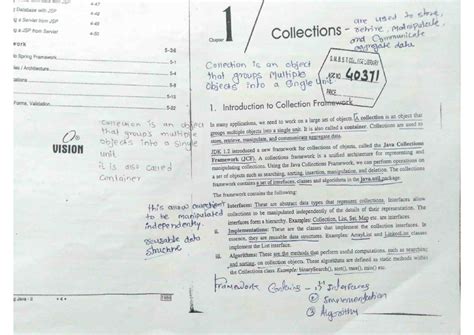 Database with JSP
4-47
a Servlet from JSP
4-51
g a Server from JSP
5-36
ework
to Spring Framework
5-36
es / Architecture
5-51
Forms, Validation
Collection is an object
that groups multiple
Objects into a Single
unit.
it is also called
Container
VISION
this allow collection
to be manipulated
independently.
reusable data
structure
ng Java - II
• 4 •
Chapter
1
Collections -
are used to store,
retrive, Manipulate,
and Communicate
aggregate data
Collection is an object
that groups Multiple
Objects into a Single Unit
LIBRARY
40371
PRICE
1. Introduction to Collection Framework
In many applications, we need to work on a large set of objects. A collection is an object that
groups multiple objects into a single unit. It is also called a container. Collections are used to
store, retrieve, manipulate, and communicate aggregate data.
JDK 1.2 introduced a new framework for collections of objects, called the Java Collections
Framework (JCF). A collections framework is a unified architecture for representing and
manipulating collections. Using the Java Collection Framework, we can perform operations on
a set of objects such as searching, sorting, insertion, manipulation, and deletion. The collections
framework contains a set of interfaces, classes and algorithms in the java.util package.
The framework contains the following:
i. Interfaces: These are abstract data types that represent collections. Interfaces allow
collections to be manipulated independently of the details of their representation. The
interfaces form a hierarchy. Examples: Collection, List, Set, Map etc. are interfaces.
ii. Implementations: These are the classes that implement the collection interfaces. In
essence, they are reusable data structures. Examples: ArrayList and LinkedList classes
implement the List interface.
iii. Algorithms: These are the methods that perform useful computations, such as searching
and sorting, on collection objects. These algorithms are defined as static methods within
the Collections class. Example: binarySearch(), sort(), max(), min() etc.
framework Contains - Interfaces
② Implementation
③ Algorithm